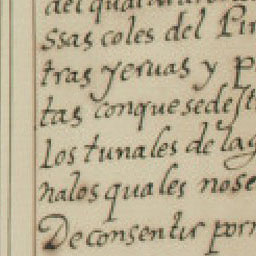 del qual
ssas coles del Pin
tras yeruas y p
tas conque sedest
los tunales de lag
nalos quales nose
De consentir porn